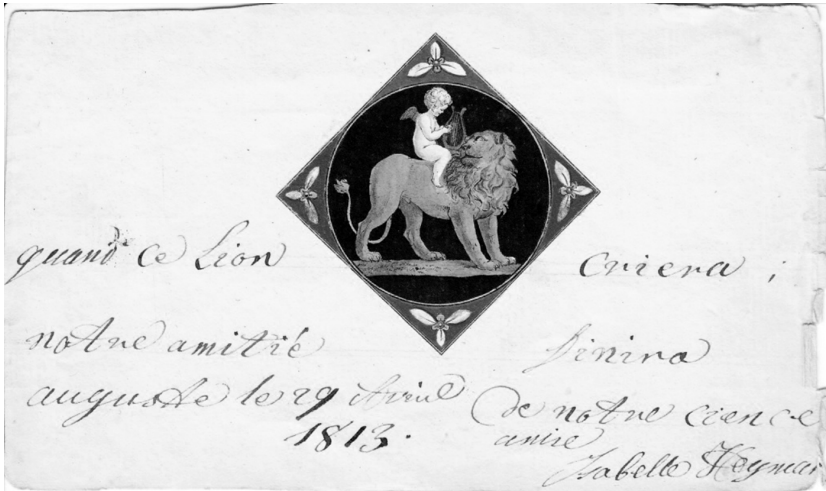 quand ce Lion criera ;
notre amitié finira
auguste le 29 Avril de notre cience
1813. amie
Isabelle Heymar